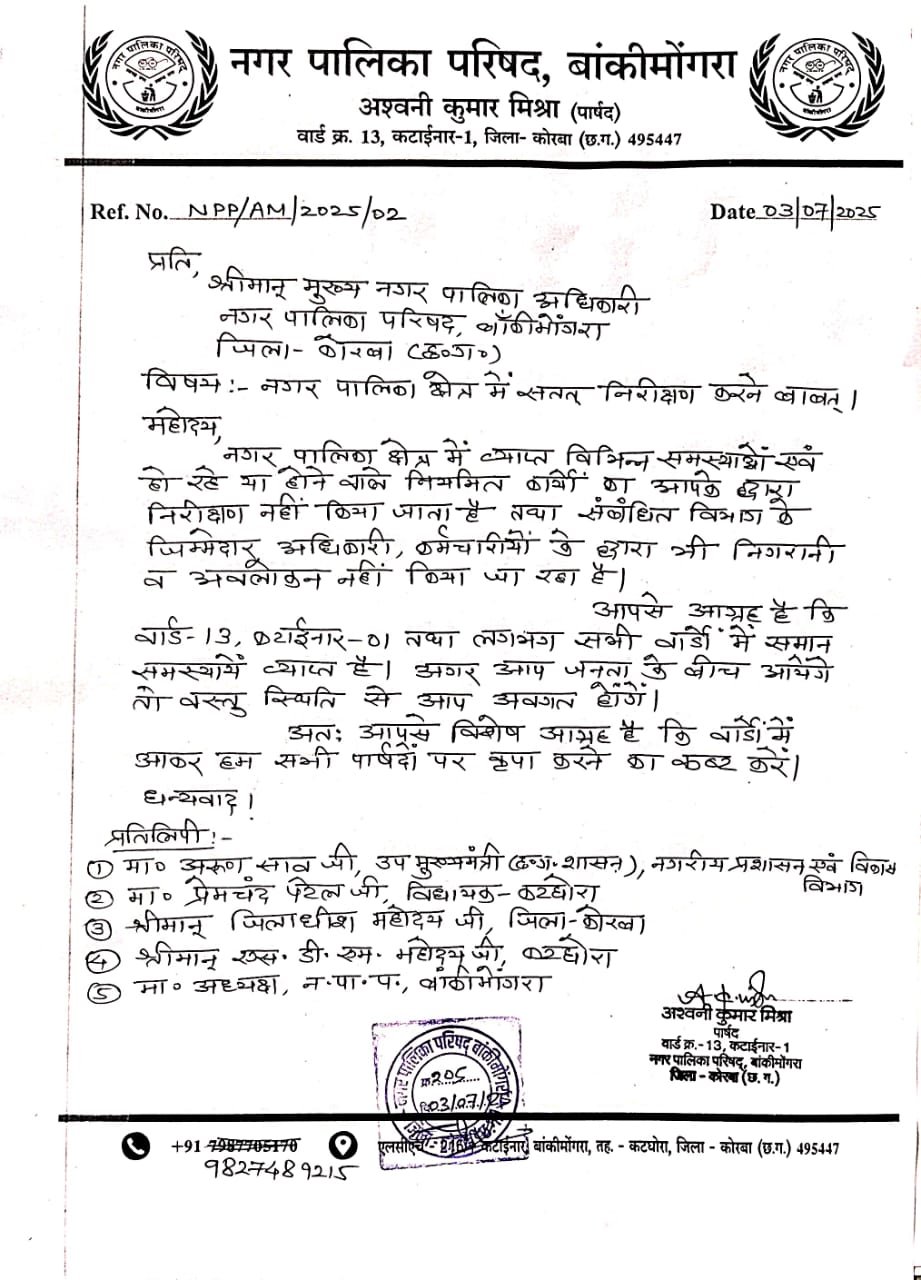 नगर पालिका परिषद, बांकीमोंगरा
अश्वनी कुमार मिश्रा (पार्षद)
वार्ड क्र. 13, कटाईनार-1, जिला- कोरबा (छ.ग.) 495447
Ref. No. NPP/AM/2025/02
Date 03/07/2025
प्रति,
श्रीमान् मुख्य नगर पालिका अधिकारी
नगर पालिका परिषद, बाँकीमोंगरा
जिला- कोरबा (छ०ग०)
विषय:- नगर पालिका क्षेत्र में सतत् निरीक्षण करने बाबत्।
महोदय,
नगर पालिका क्षेत्र में व्याप्त विभिन्न समस्याओं एवं
हो रहे या होने वाले नियमित कार्यों का आपके द्वारा
निरीक्षण नहीं किया जाता है तथा संबंधित विभाग के
जिम्मेदार अधिकारी, कर्मचारीयों के द्वारा भी निगरानी
व अवलोकन नहीं किया जा रहा है।
आपसे आग्रह है कि
वार्ड-13, कटाईनार-01 तथा लगभग सभी वार्डों में समान
समस्यायें व्याप्त है। अगर आप जनता के बीच आयेंगे
तो वस्तु स्थिति से आप अवगत होंगें।
अत: आपसे विशेष आग्रह है कि वार्डों में
आकर हम सभी पार्षदों पर कृपा करने का कष्ट करें।
धन्यवाद।
प्रतिलिपी:-
① मा० अरुण साव जी, उप मुख्यमंत्री (छ.ग. शासन), नगरीय प्रशासन एवं विकास
विभाग
② मा० प्रेमचंद पटेल जी, विधायक- कटघोरा
③ श्रीमान् जिलाधीश महोदय जी, जिला-कोरबा
④ श्रीमान् एस. डी. एम. महोदय जी, कटघोरा
⑤ मा० अध्यक्ष, न.पा.प., बांकीमोंगरा
अश्वनी कुमार मिश्रा
पार्षद
वार्ड क्र.-13, कटाईनार-1
नगर पालिका परिषद्, बांकीमोंगरा
जिला - कोरबा (छ. ग.)
नगर पालिका परिषद बांकीमोंगरा
क्र. 205
दि. 03/07/25
+91 7987705170
9827489215
कटाईनार, बांकीमोंगरा, तह. - कटघोरा, जिला - कोरबा (छ.ग.) 495447